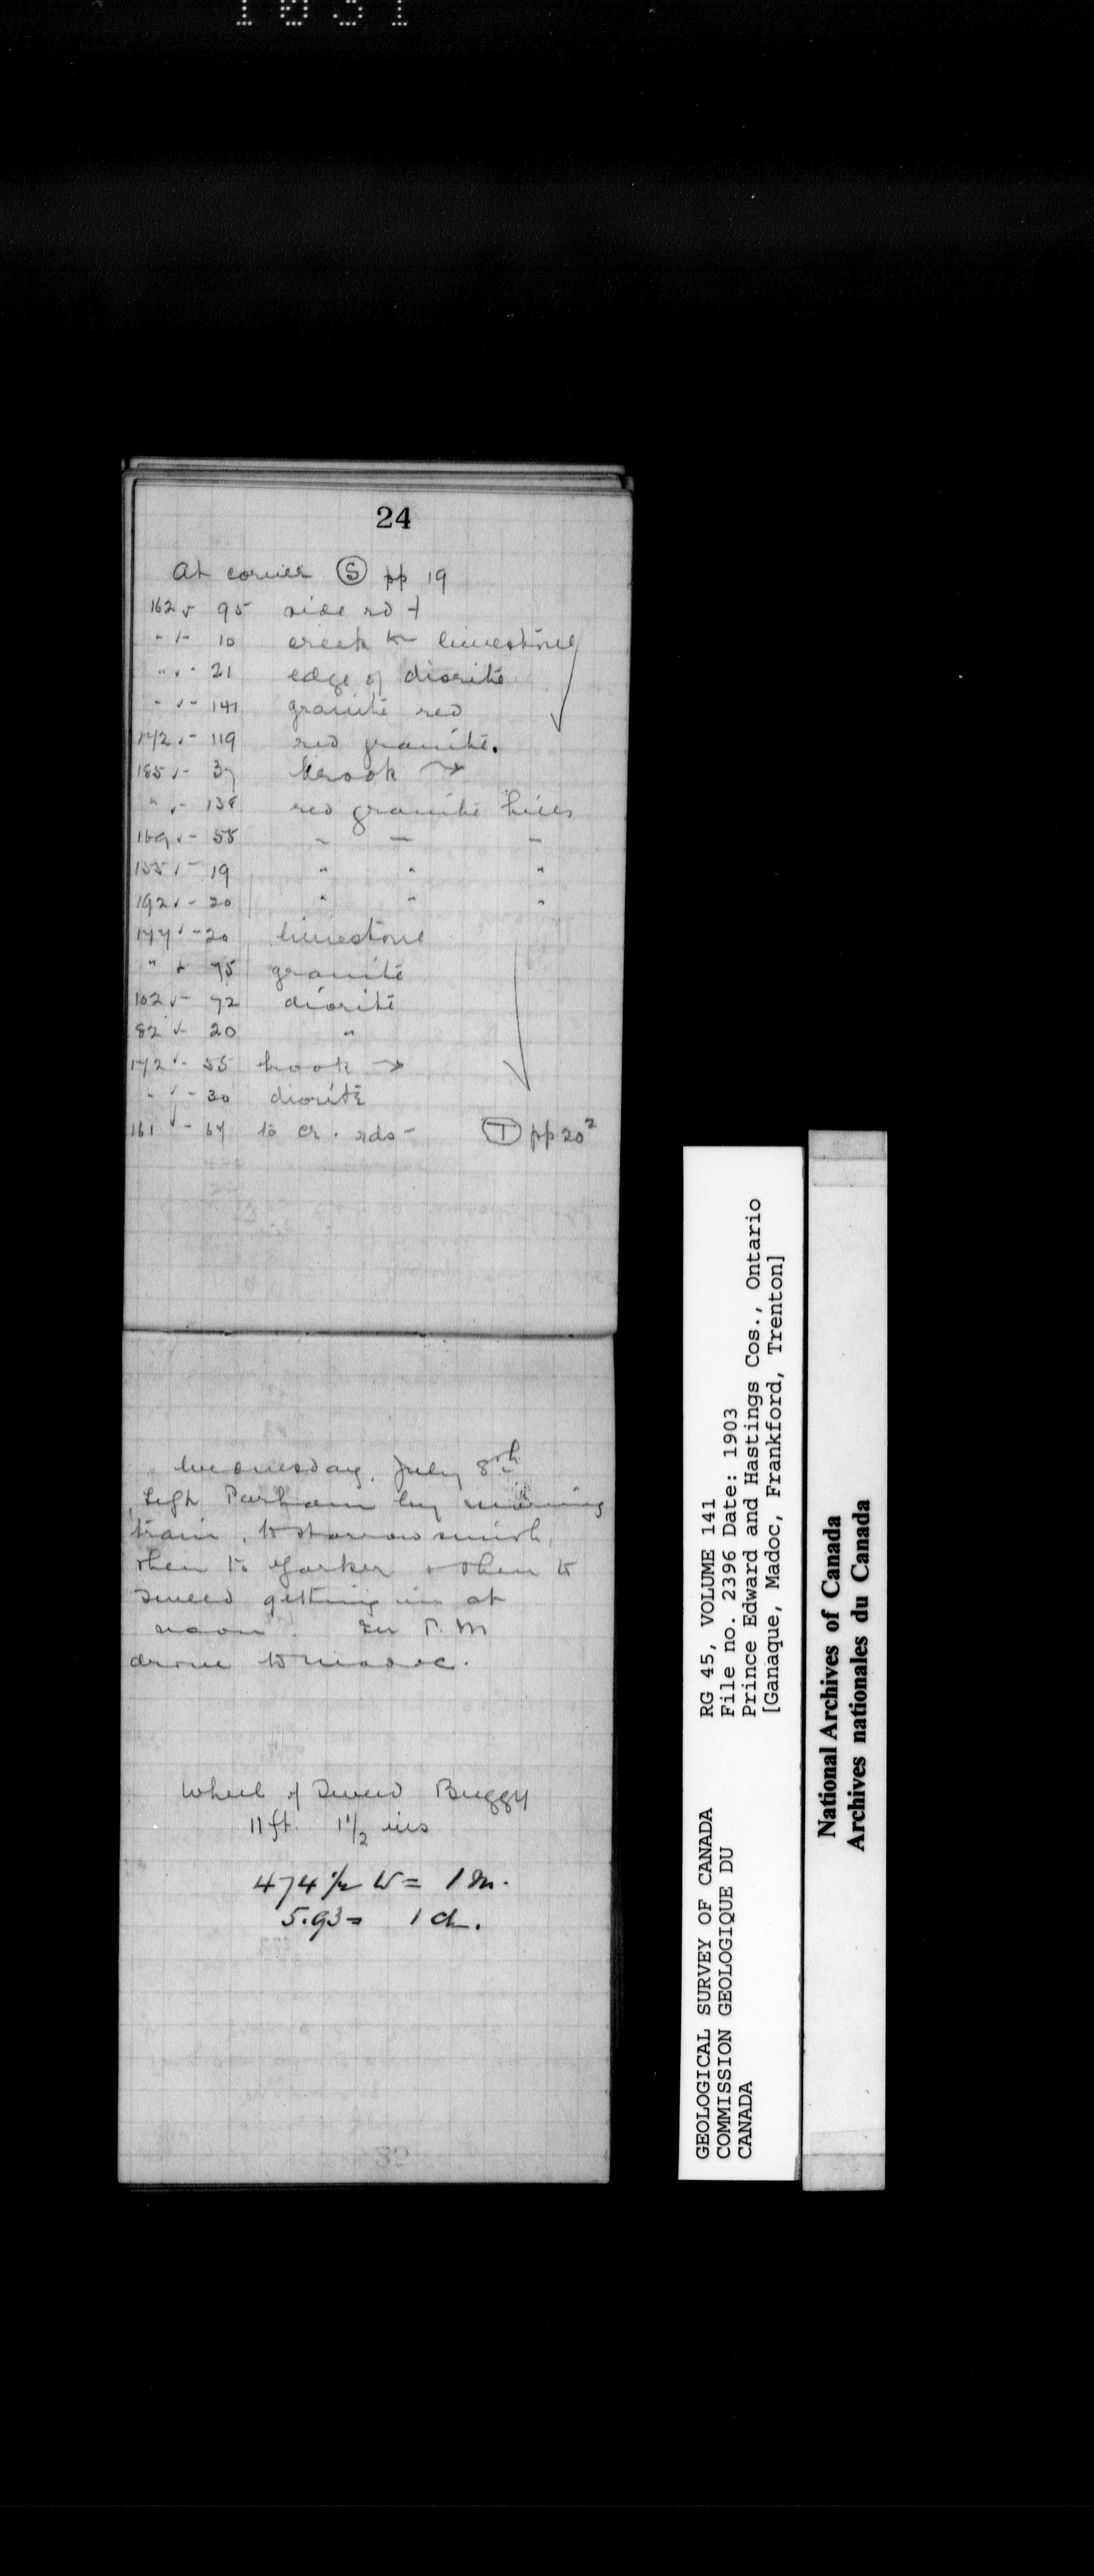 24
At corner Ⓢ pp 19
162 ✓ 95 side rd +
" ✓ - 10 creek ← limestone
" ✓ - 21 edge of diorite
" ✓ - 141 granite red
172 ✓ - 119 red granite.
185 ✓ - 37 brook →
" ✓ - 138 red granite hills
169 ✓ - 55 " " "
155 ✓ - 19 " " "
192 ✓ - 20 " " "
177 ✓ - 20 limestone
" ✓ 75 granite
102 ✓ - 72 diorite
82 ✓ 20 "
172 ✓ - 55 brook →
" ✓ - 30 diorite
161 ✓ - 64 to cr. rds - Ⓣ pp 20²
Wednesday, July 8th
Left Parham by morning
train, to Harrowsmith,
then to Yarker & then to
Tweed getting in at
noon. In P.M
drove to Madoc.
Wheel of Tweed Buggy
11 ft. 1 1/2 ins
474 1/2 W = 1 M.
5.93 = 1 ch.
GEOLOGICAL SURVEY OF CANADA
COMMISSION GEOLOGIQUE DU
CANADA
RG 45, VOLUME 141
File no. 2396 Date: 1903
Prince Edward and Hastings Cos., Ontario
[Ganaque, Madoc, Frankford, Trenton]
National Archives of Canada
Archives nationales du Canada